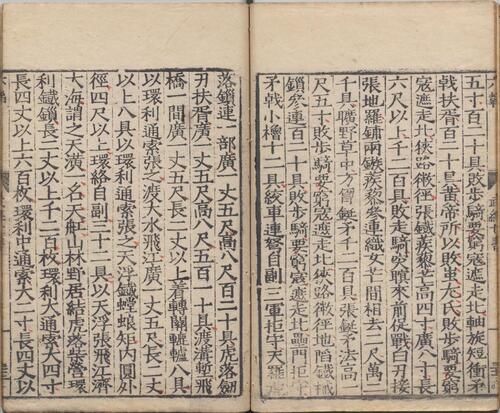 五寸百二十具敗步騎要窮寇遮走北軸旋短衝矛
戟扶胥百二十具黃帝所以敗蚩尤氏敗步騎要窮
寇遮走北狹路微徑張鐵蒺藜芒高四寸廣八寸長
六尺以上千二百具敗走騎突瞑來前促戰白刃接
張地羅鋪兩鏃蒺藜參連織女芒間相去二尺萬二
千具曠野草中方胷鋋矛千二百具張鋋矛法高一
尺五寸敗步騎要窮寇遮走北狹路微徑地陷鐵械
鎖參連百二十具敗步騎要窮寇遮走北壘門拒守
矛戟小櫓十二具絞車連弩自副三軍拒守天羅虎
落鎖連一部廣一丈五尺高八尺百二十具虎落劒
刃扶胥廣一丈五尺高八尺五百一十具渡溝塹飛
橋一間廣一丈五尺長二丈以上着轉關轆轤八具
以環利通索張之渡大水飛江廣一丈五尺長二丈
以上八具以環利通索張之天浮鐵螳螂矩內圓外
徑四尺以上環絡自副三十二具以天浮張飛江濟
大海謂之天潢一名天舡山林野居結虎落柴營環
利鐵鎖長二丈以上千二百枚環利大通索大四寸
長四丈以上六百枚環利中通索大二寸長四丈以